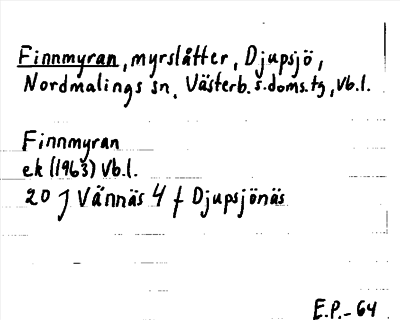 Finnmyran, myrslåtter, Djupsjö,
Nordmalings sn, Västerb. s.doms.tg, Vb.l.
Finnmyran
ek (1963) Vb.l.
20 J Vännäs 4 f Djupsjönäs
E.P. - 64